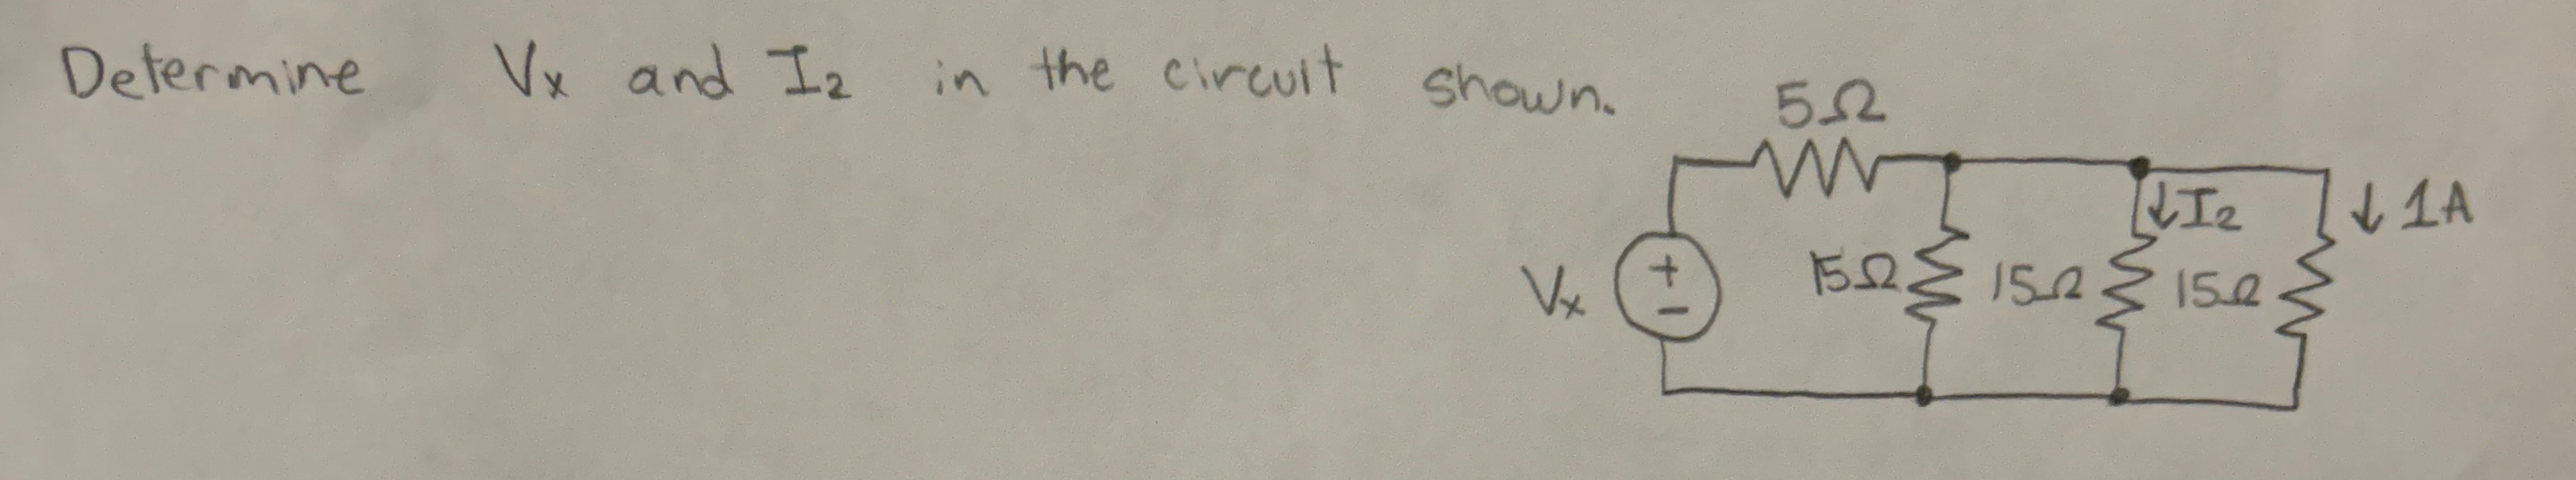 Determine Vx and I2 in the circuit shown.
5Ω
↓I2
↓ 1A
Vx
+
−
15Ω
15Ω
15Ω